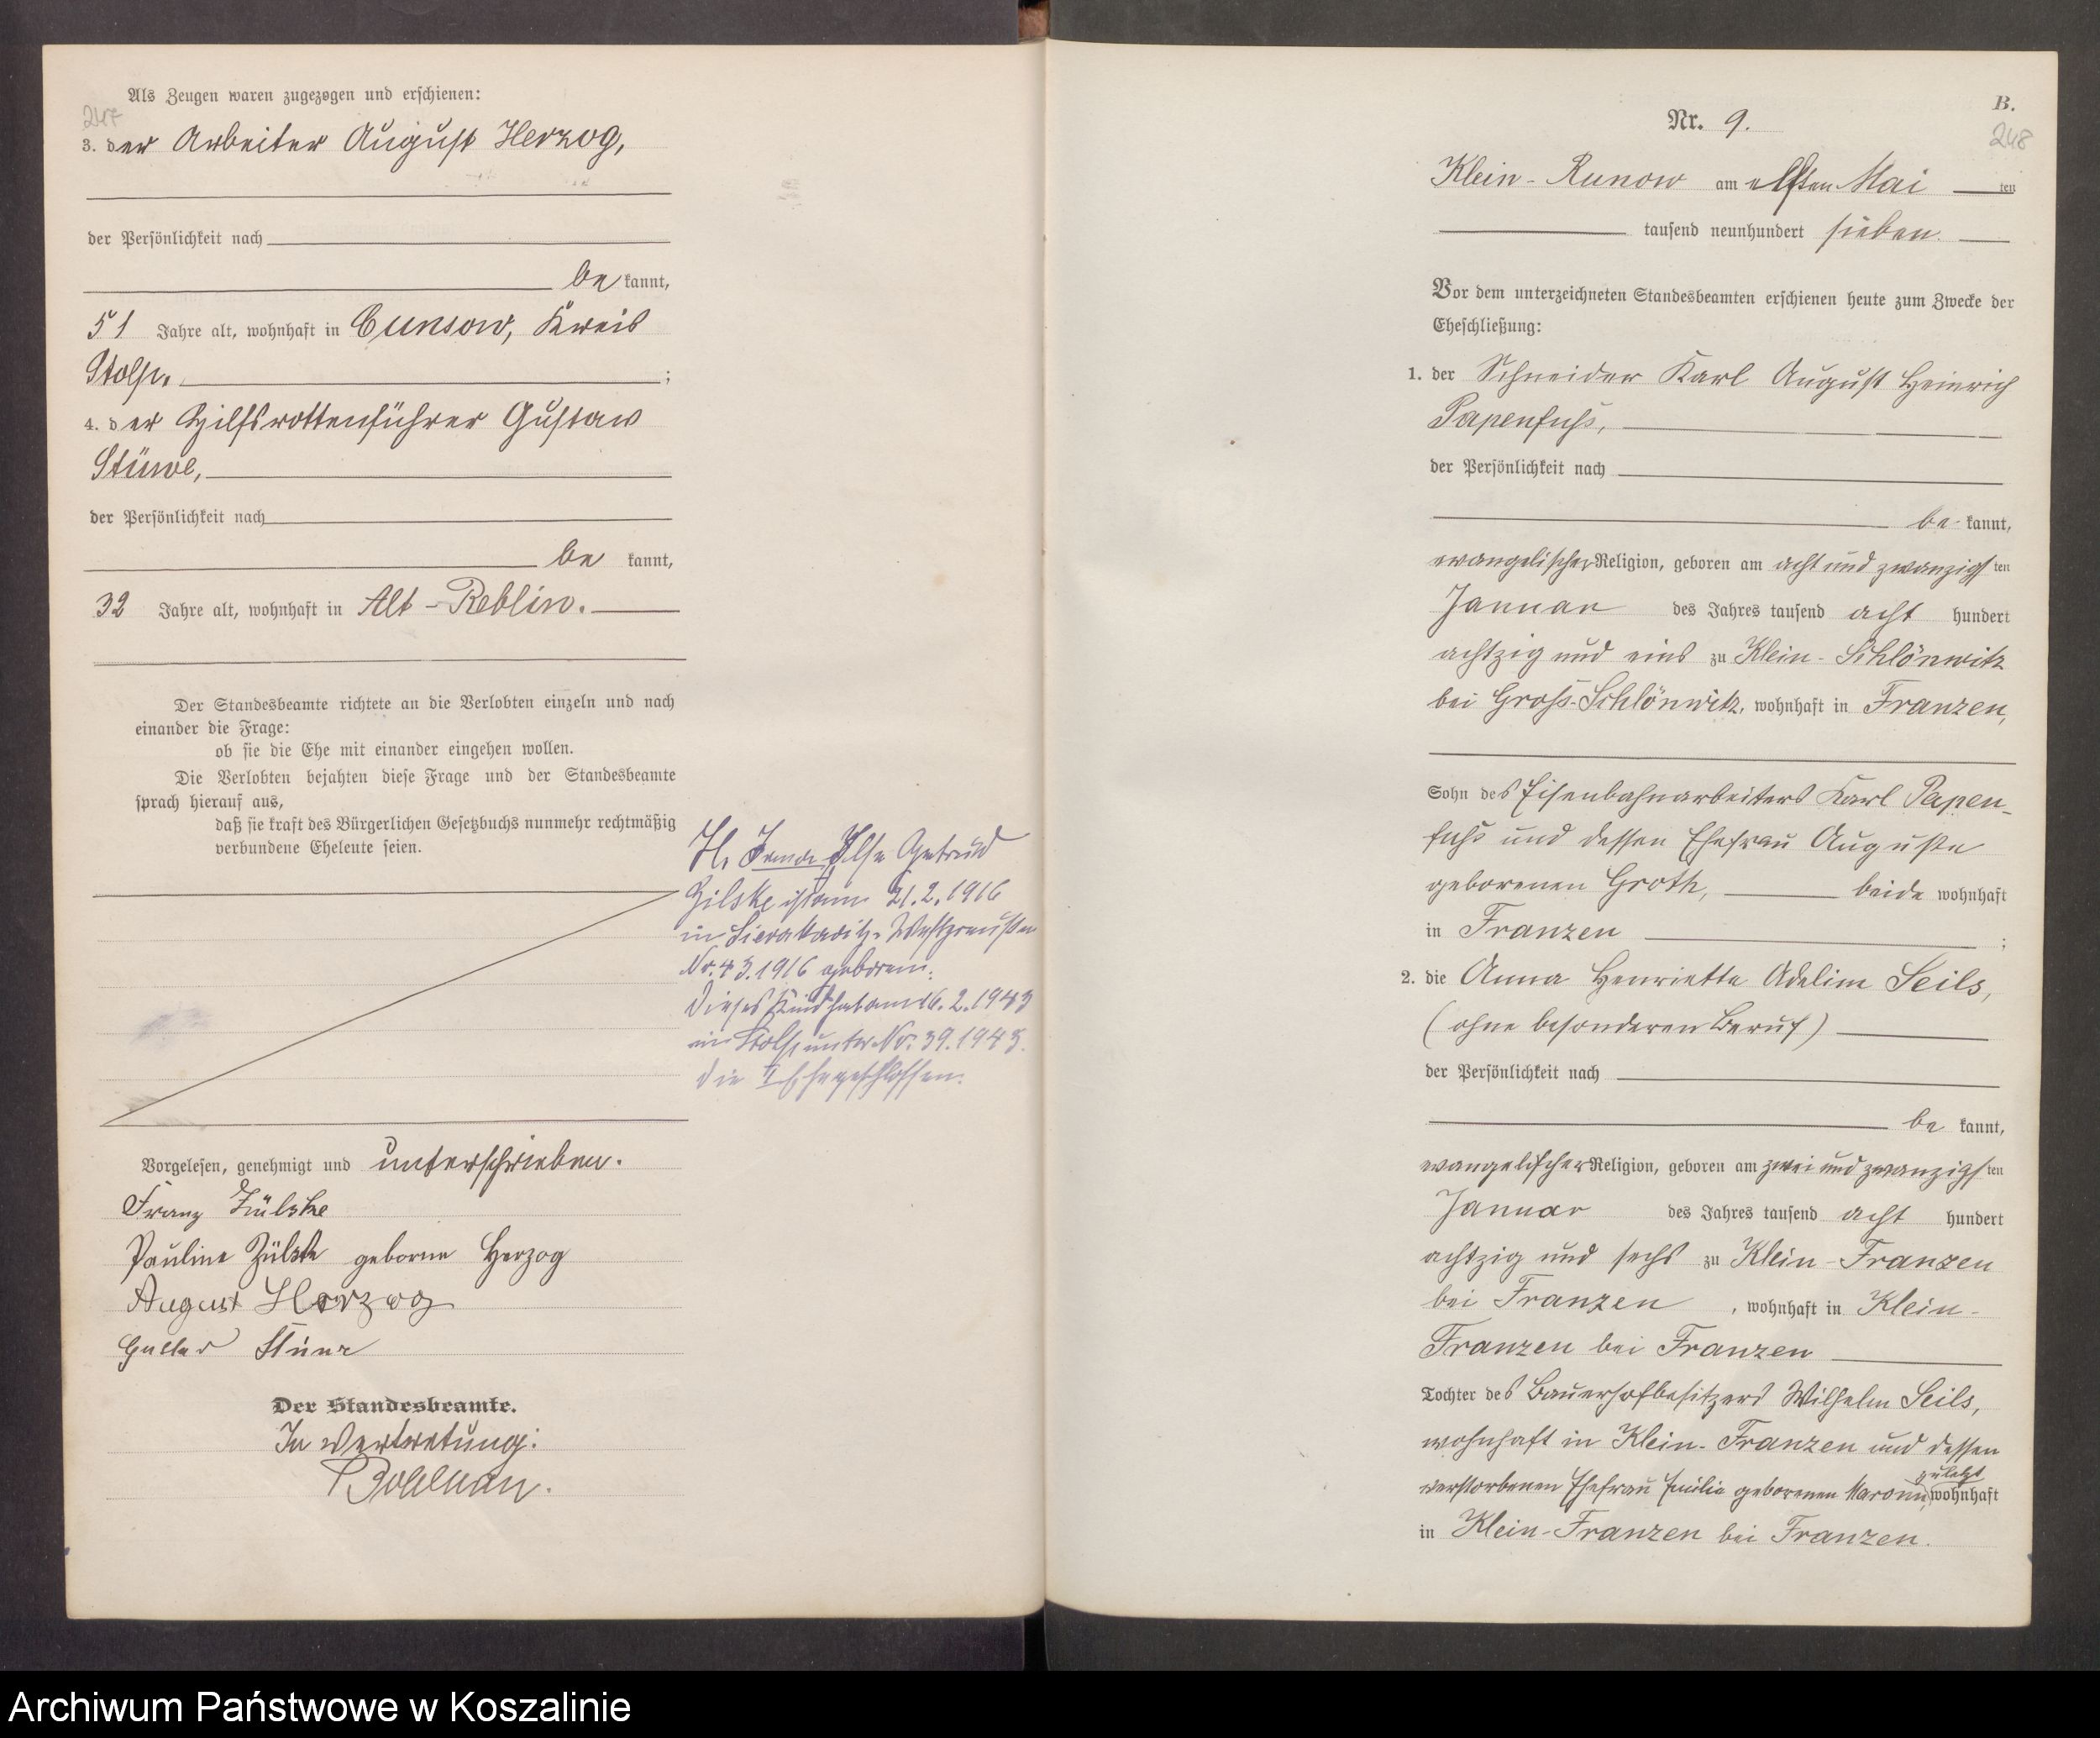 Als Zeugen waren zugezogen und erschienen:
247
3. der Arbeiter August Herzog,
der Persönlichkeit nach
be kannt,
51 Jahre alt, wohnhaft in Cunsow, Kreis
Stolp.;
4. der Hilfsrottenführer Gustaw
Stüwe,
der Persönlichkeit nach
be kannt,
32 Jahre alt, wohnhaft in Alt-Reblin.
Der Standesbeamte richtete an die Verlobten einzeln und nach
einander die Frage:
ob sie die Ehe mit einander eingehen wollen.
Die Verlobten bejahten diese Frage und der Standesbeamte
sprach hierauf aus,
daß sie kraft des Bürgerlichen Gesetzbuchs nunmehr rechtmäßig
verbundene Eheleute seien.
Irma Ilse Gertrud
ist am 21.2.1916
in Westpreußen
Nr. 43.1916 geboren.
Dieses Kind hat am 16.2.1943
in Stolp unter Nr. 39.1943.
die II Ehe geschlossen.
Vorgelesen, genehmigt und unterschrieben.
Franz Zülske
Pauline Zülske geborne Herzog
August Herzog
Gustav Stüwe
Der Standesbeamte.
In Vertretung:
B.
Nr. 9.
248
Klein-Runow am elften Mai ten
tausend neunhundert sieben.
Vor dem unterzeichneten Standesbeamten erschienen heute zum Zwecke der
Eheschließung:
1. der Schneider Karl August Heinrich
Papenfuß,
der Persönlichkeit nach
be kannt,
evangelischer Religion, geboren am acht und zwanzigsten
Januar des Jahres tausend acht hundert
achtzig und eins zu Klein-Schlönwitz
bei Groß-Schlönwitz, wohnhaft in Franzen,
Sohn des Eisenbahnarbeiters Karl Papen-
fuß und dessen Ehefrau Auguste
geborenen Groth, beide wohnhaft
in Franzen ;
2. die Anna Henriette Adeline Seils,
(ohne besonderen Beruf)
der Persönlichkeit nach
be kannt,
evangelischer Religion, geboren am zwei und zwanzigsten
Januar des Jahres tausend acht hundert
achtzig und sechs zu Klein-Franzen
bei Franzen, wohnhaft in Klein-
Franzen bei Franzen
Tochter des Bauerhofbesitzers Wilhelm Seils,
wohnhaft in Klein-Franzen und dessen
zuletzt
verstorbenen Ehefrau Emilie geborenen wohnhaft
in Klein-Franzen bei Franzen.
Archiwum Państwowe w Koszalinie